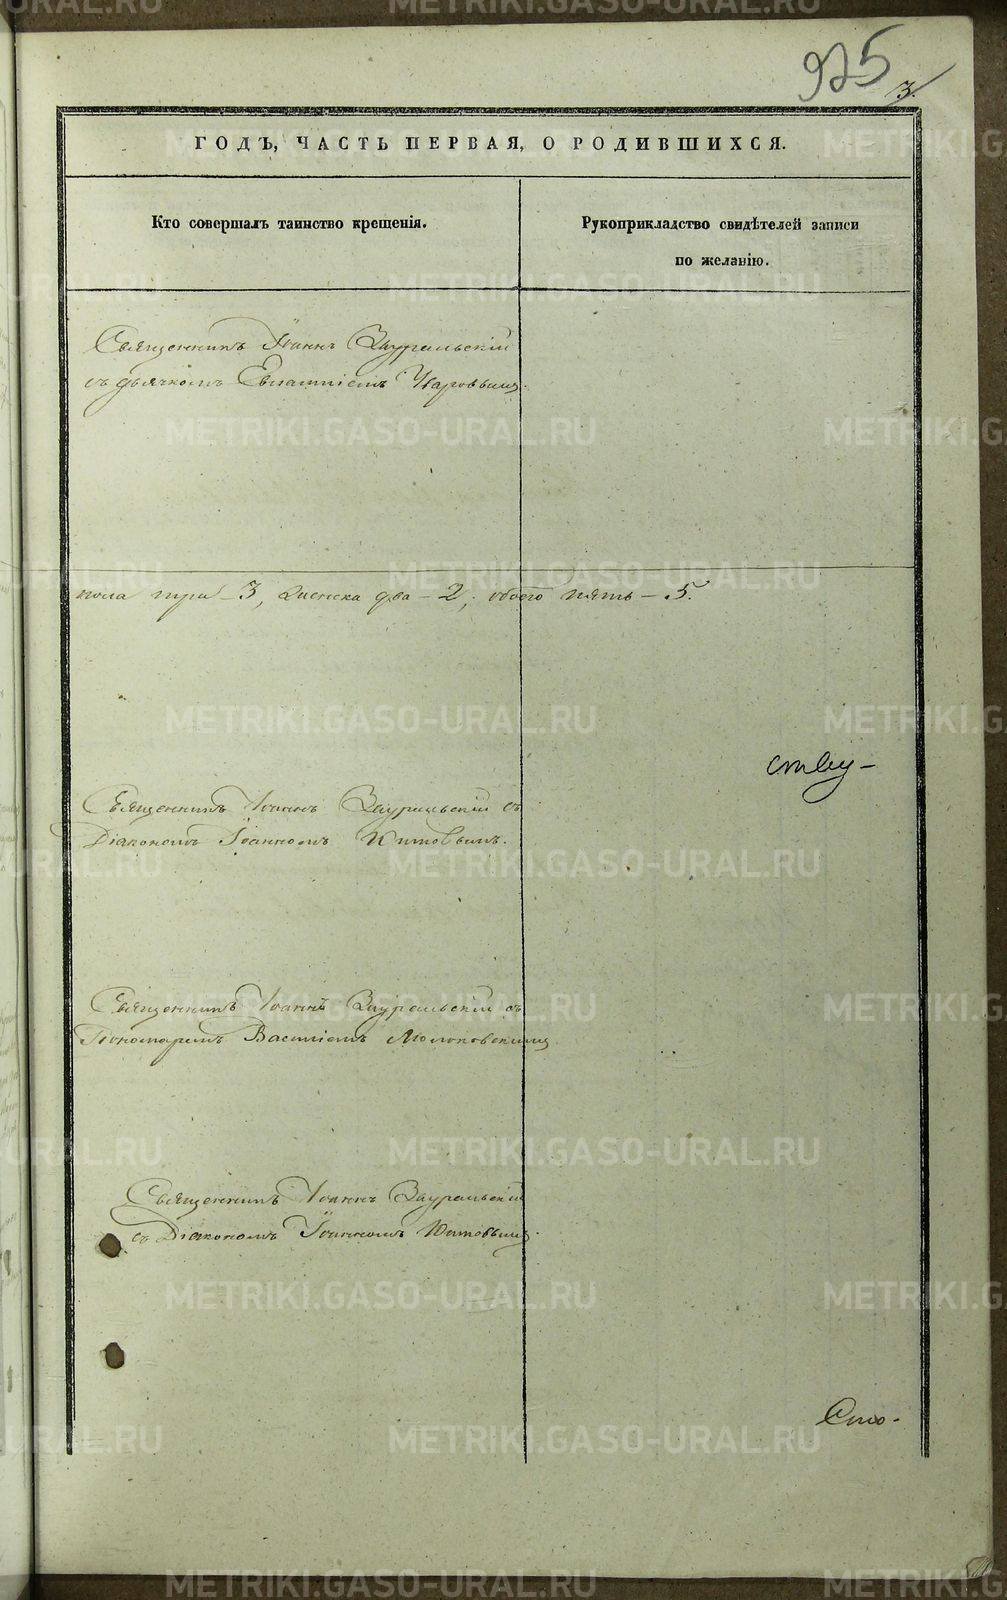 925
3.
ГОДЪ, ЧАСТЬ ПЕРВАЯ, О РОДИВШИХСЯ.
Кто совершалъ таинство крещенія.
Рукоприкладство свидѣтелей записи
по желанію.
Священникъ Іоаннъ Зауральскій
съ дьячкомъ Евлампіемъ Уваровымъ.
пола три – 3, женска два – 2, обоего пять – 5.
ству-
Священникъ Іоаннъ Зауральскій съ
Діакономъ Іоанномъ Китовымъ.
Священникъ Іоаннъ Зауральскій съ
Пономаремъ Василіемъ
Священникъ Іоаннъ Зауральскій
съ Діакономъ Іоанномъ Китовымъ.
METRIKI.GASO-URAL.RU